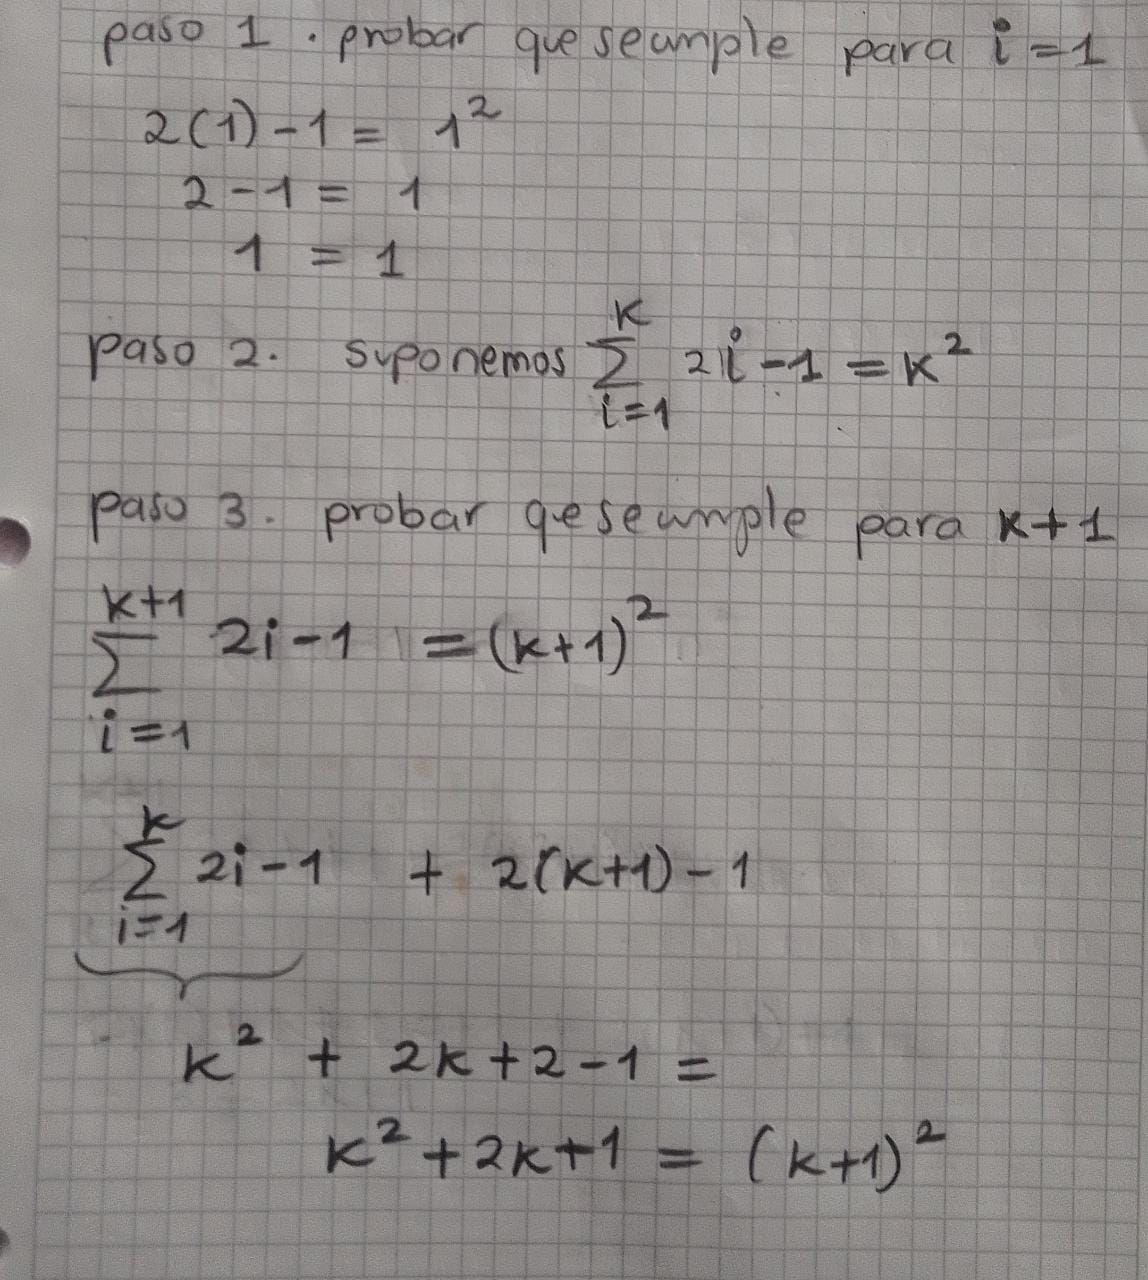 paso 1 . probar que se cumple para i = 1
2(1) - 1 = 1²
2 - 1 = 1
1 = 1
paso 2. suponemos ∑_{i=1}^{K} 2i - 1 = K²
paso 3. probar qe se cumple para K + 1
∑_{i=1}^{k+1} 2i - 1 = (k+1)²
∑_{i=1}^{k} 2i - 1 + 2(K+1) - 1
k² + 2k + 2 - 1 =
k² + 2k + 1 = (k+1)²